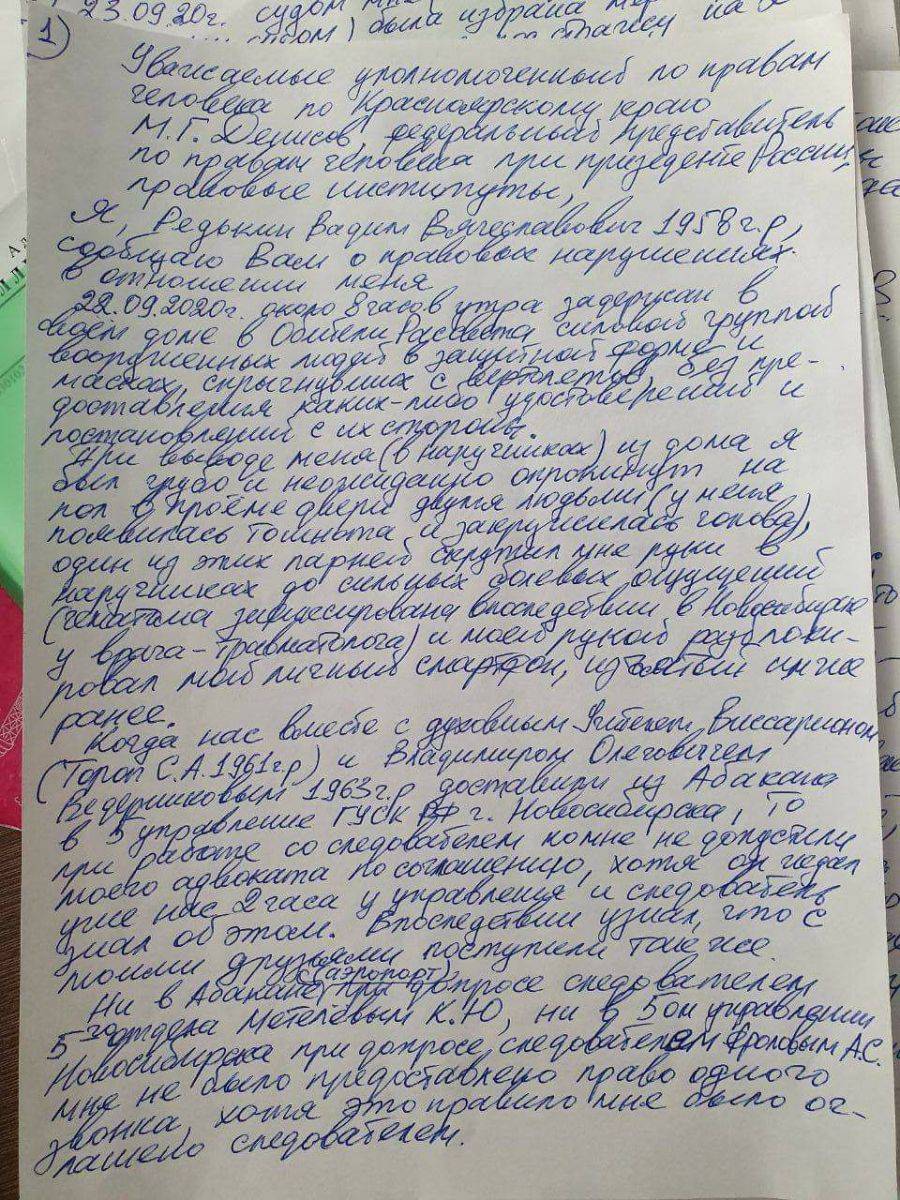 23.09.20г. судом мне
была избрана
1
Уважаемые уполномоченный по правам
человека по Красноярскому краю
М.Г. Денисов, федеральный представитель
по правам человека при призеденте России,
правовые институты,
Я, Редькин Вадим Вячеславович 1958г.р,
сообщаю Вам о правовых нарушениях
в отношении меня
22.09.2020г. около 8 часов утра задержан в
своём доме в Обители Рассвета силовой группой
вооруженных людей в защитной форме и
масках, спрыгнувших с вертолетов, без пре-
доставления каких-либо удостоверений и
постановлений с их стороны.
При выводе меня (в наручниках) из дома я
был грубо и неожиданно опрокинут на
пол в проёме двери двумя людьми (у меня
появилась тошнота и закружилась голова),
один из этих парней скрутил мне руки в
наручниках до сильных болевых ощущений
(гематома зафиксирована впоследствии в Новосибирске
у врача-травматолога) и моей рукой разблоки-
ровал мой личный смартфон, изъятый
ранее.
Когда нас вместе с духовным Учителем Виссарионом
(Тороп С.А. 1961г.р) и Владимиром Олеговичем
Ведерниковым 1963г.р доставили из Абакана
в 5 управление ГУСК РФ г. Новосибирска, то
при работе со следователем ко мне не допустили
моего адвоката по соглашению, хотя он ждал
уже нас 2 часа у управления и следователь
знал об этом. Впоследствии узнал, что с
моими друзьями поступили также.
Ни в Абакане (аэропорт) при допросе следователем
5го отдела Метелевым К.Ю, ни в 5ом управлении
Новосибирска при допросе следователем Фроловым А.С.
мне не было предоставлено право одного
звонка, хотя это правило мне было ог-
лашено следователем.